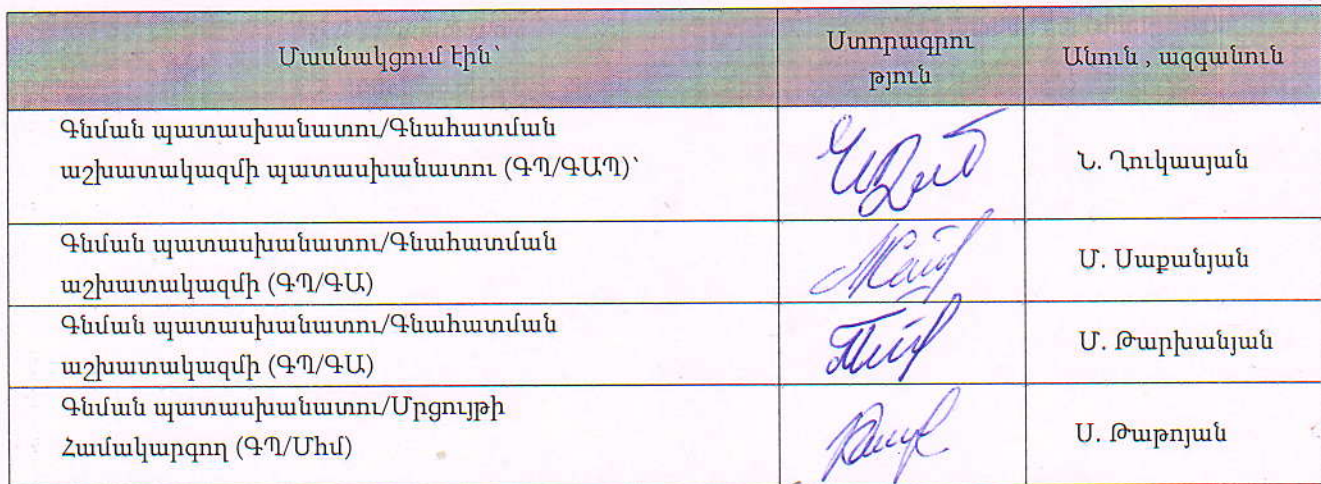 Մասնակցում էին՝
Ստորագրու
թյուն
Անուն , ազգանուն
Գնման պատասխանատու/Գնահատման
աշխատակազմի պատասխանատու (ԳՊ/ԳԱՊ)՝
Ն. Ղուկասյան
Գնման պատասխանատու/Գնահատման
աշխատակազմի (ԳՊ/ԳԱ)
Մ. Սաքանյան
Գնման պատասխանատու/Գնահատման
աշխատակազմի (ԳՊ/ԳԱ)
Մ. Թարխանյան
Գնման պատասխանատու/Մրցույթի
Համակարգող (ԳՊ/Միմ)
Ս. Թաթոյան